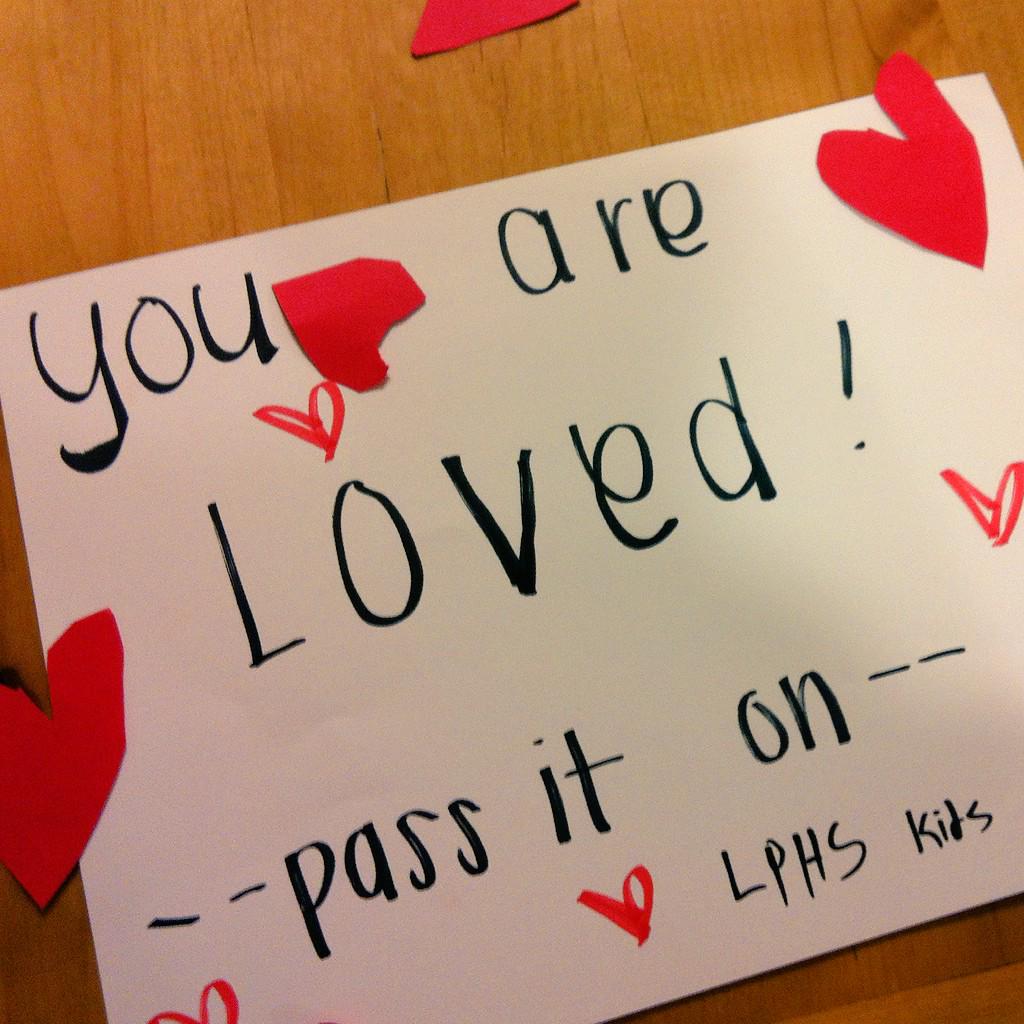 you are
Loved!
--pass it on--
LPHS kids